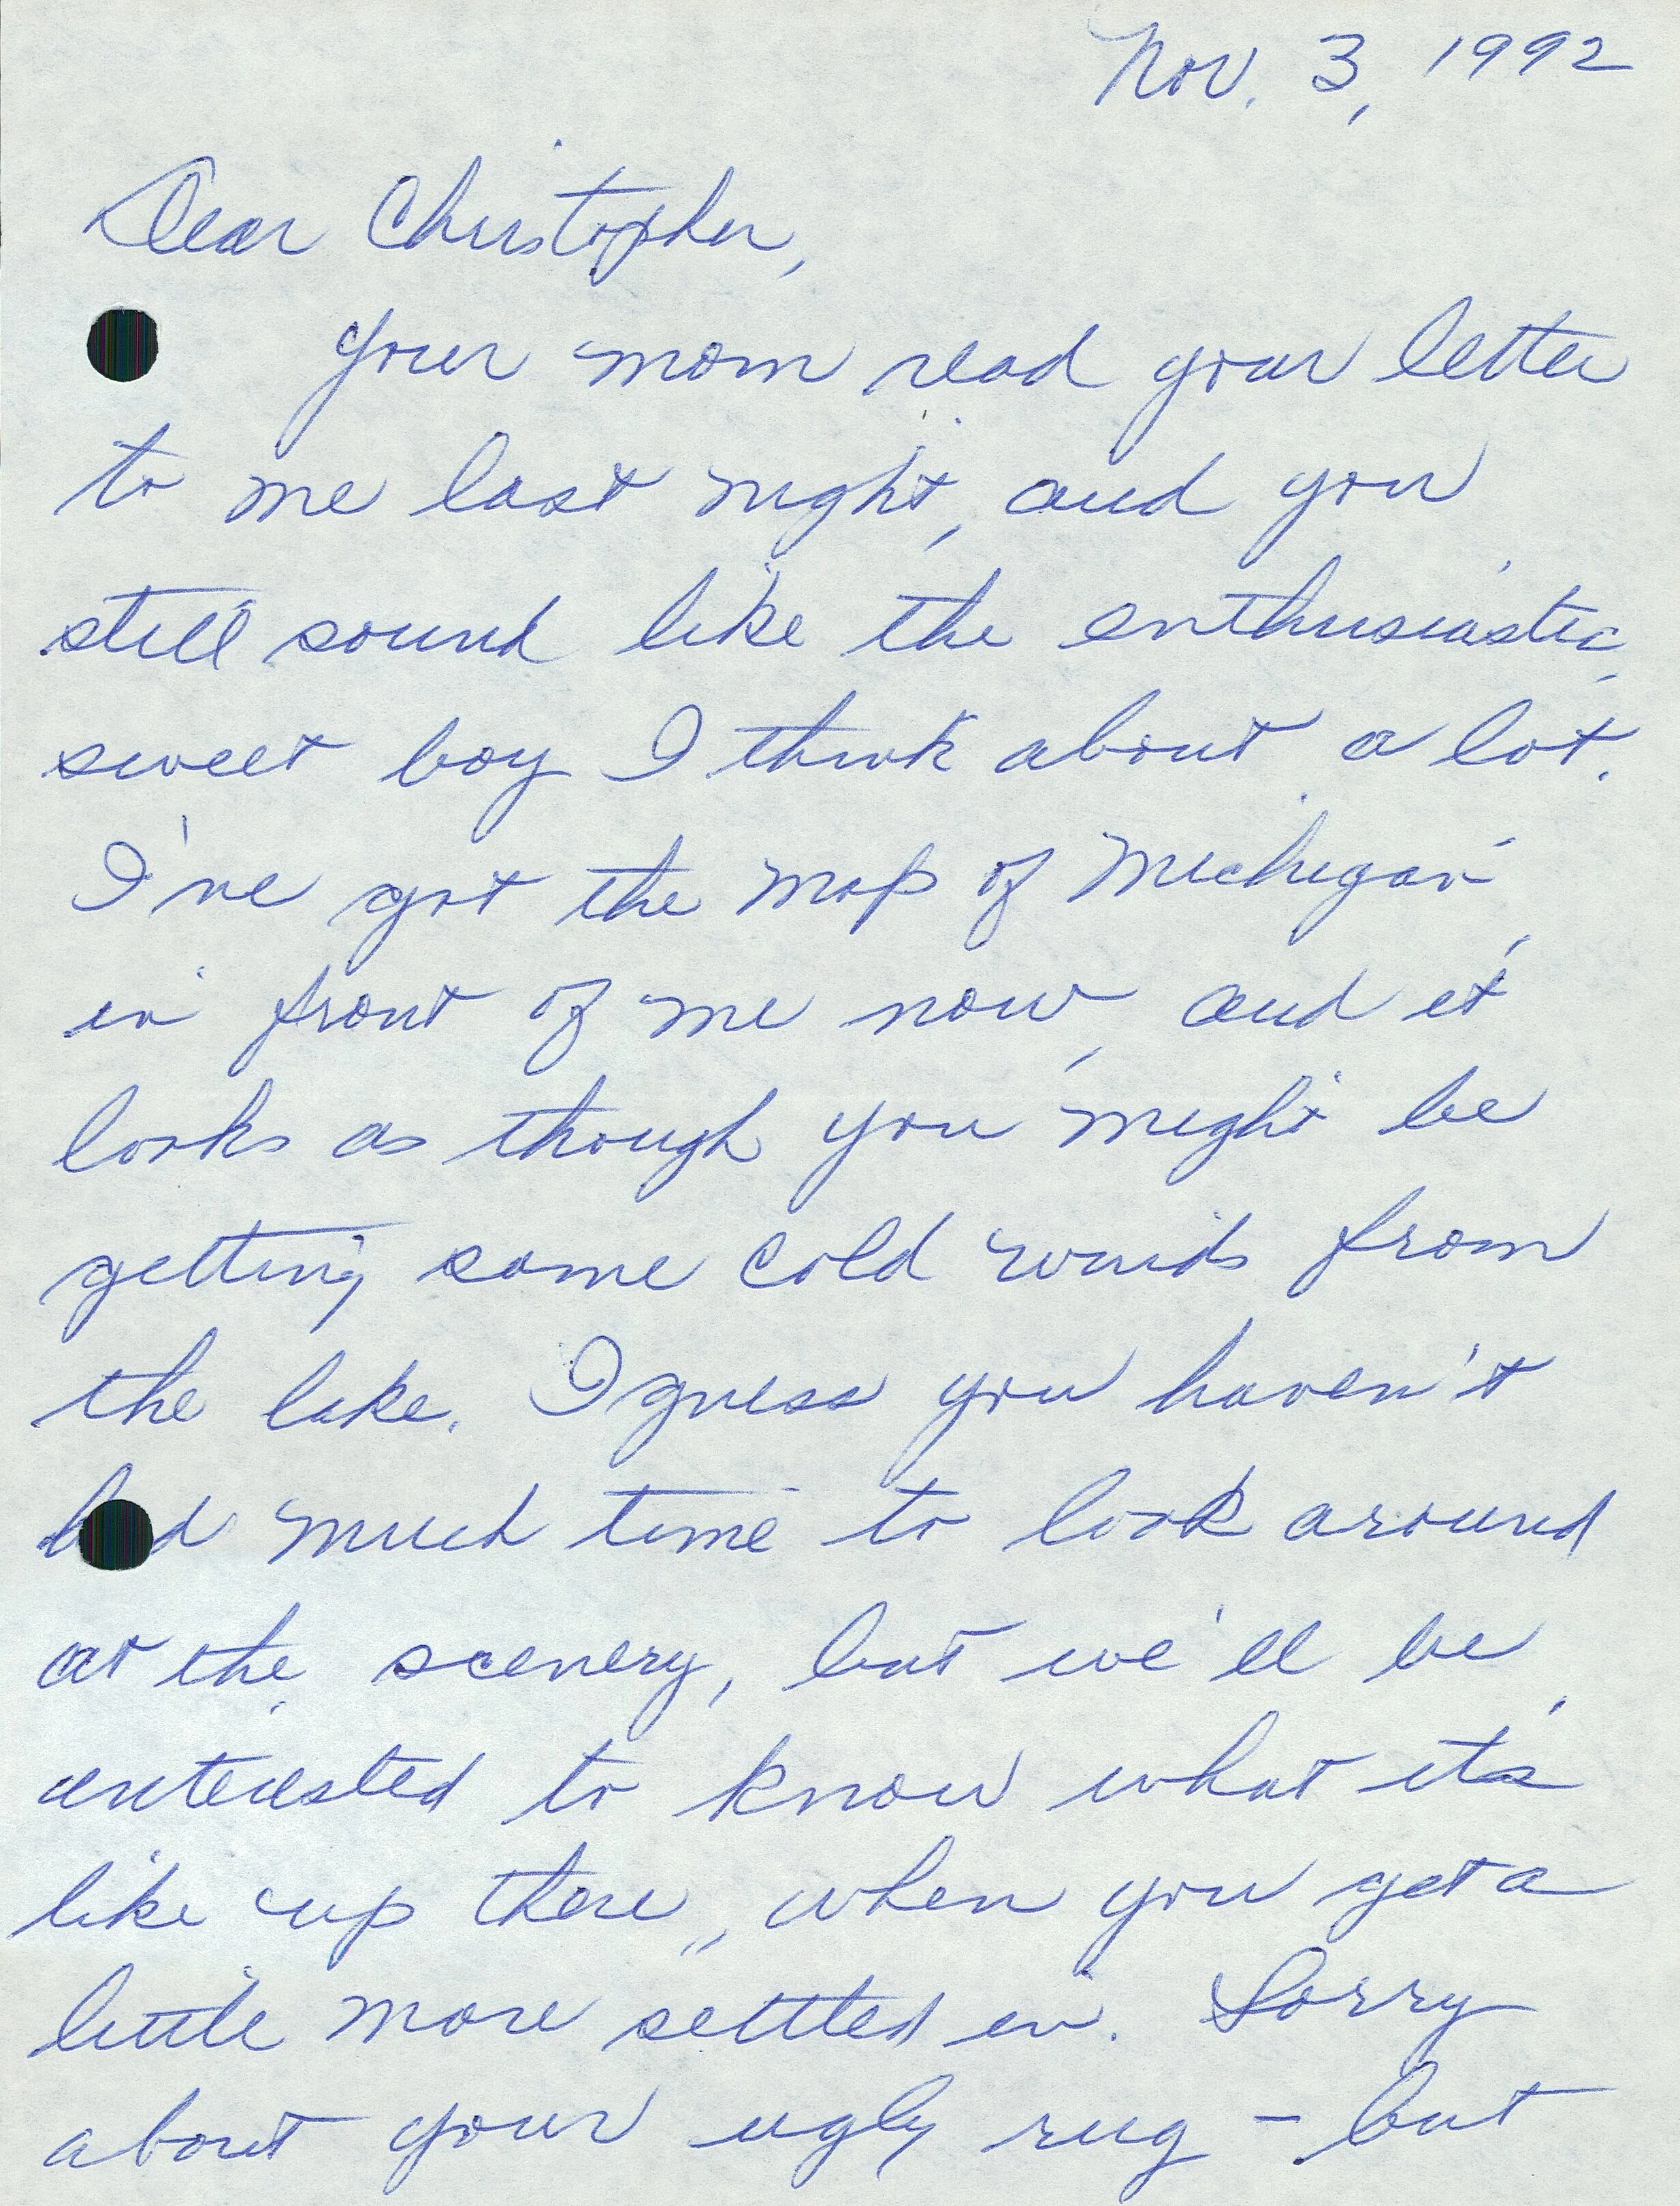 Nov. 3, 1992
Dear Christopher,
Your mom read your letter
to me last night, and you
still sound like the enthusiastic,
sweet boy I think about a lot.
I've got the map of Michigan
in front of me now, and it
looks as though you might be
getting some cold winds from
the lake. I guess you haven't
had much time to look around
at the scenery, but we'll be
interested to know what it's
like up there, when you get a
little more settled in. Sorry
about your ugly rug - but